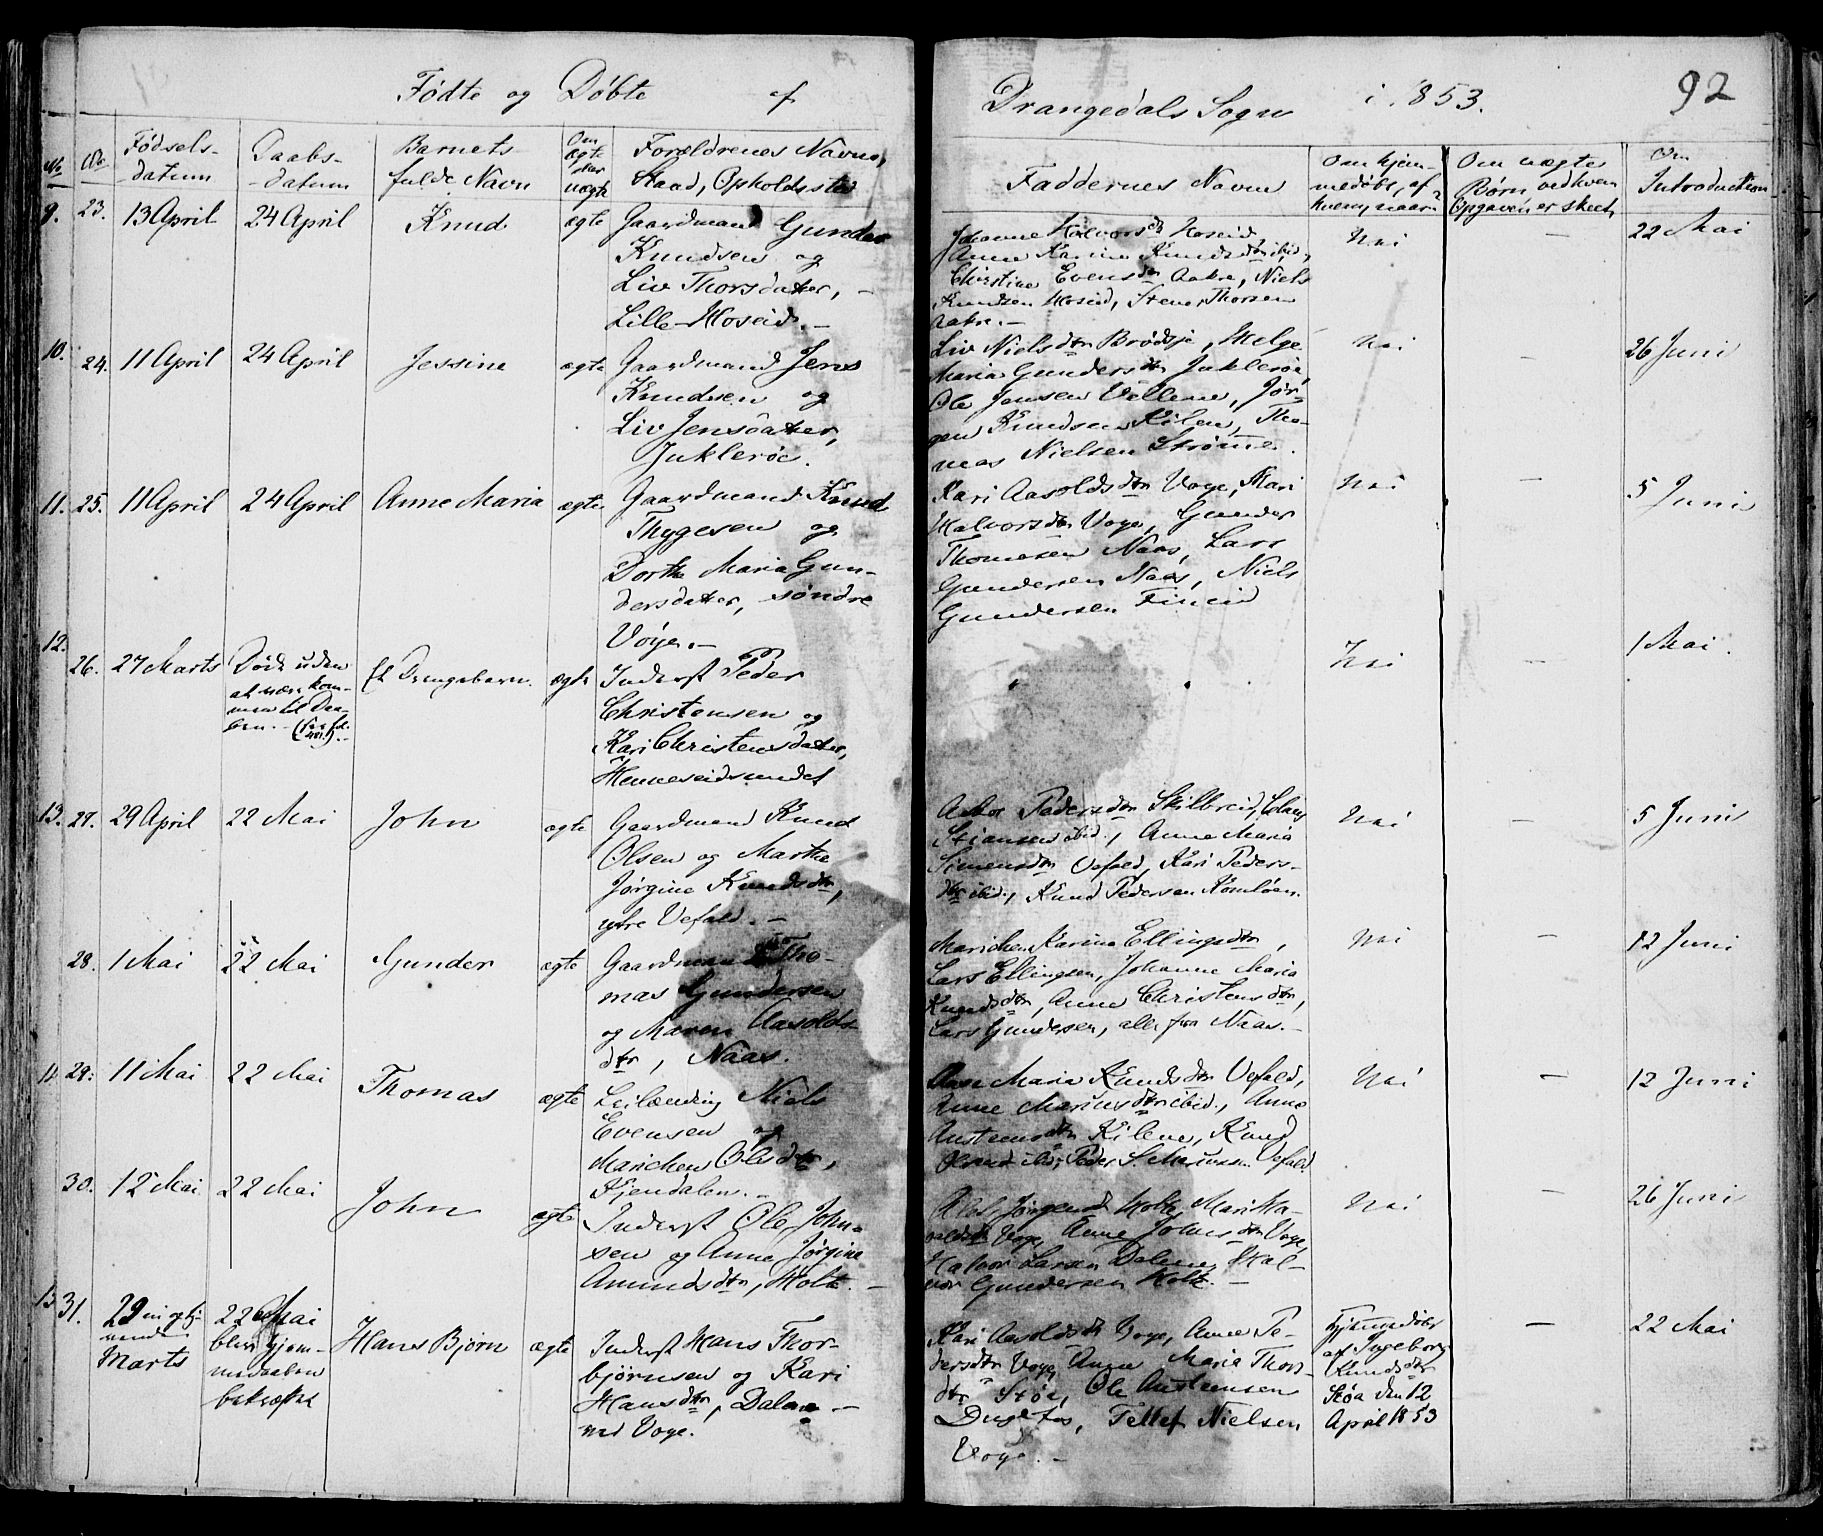 Fødte og Døbte af Drangedals Sogn i 1853. 92
No. No. Fødsels-datum Daabs-datum Barnets fulde Navn Om ægte eller uægte Forældrenes Navne, Stand, Opholdssted Faddernes Navne Om hjemmedøbt, af hvem, naar? Om uægte Børn ved hvem Opgaven er skeet Om Introduction
9. 23. 13 April 24 April Knud ægte Gaardmand Gunder
Knudsen og
Liv Thorsdatter, –
Lille-Hoseid. –
Johanne Halvorsdtr Hoseid
Anne Karine Knudsdtr ibid,
Christine Evensdtr Aakre, Niels
Knudsen Hoseid, Thorsen
Aakre. –
Nei – 22 Mai
10. 24. 11 April 24 April Jessine ægte Gaardmand Jens
Knudsen og
Liv Jensdatter,
Juklerøe.
Liv Nielsdtr Brødsjø, Helge
Maria Gundersdtr Juklerøe,
Ole Jensen Vellene, Jør-
gen Knudsen Kilen, Tho-
mas Nielsen Strømme.
Nei – 26 Juni
11. 25. 11 April 24 April Anne Maria ægte Gaardmand Knud
Thygesen og
Dorthe Maria Gun-
dersdatter, søndre
Voje. –
Kari Aasoldsdtr Voje, Mari
Halvorsdtr Voje, Gunder
Thomesen Naas, Lars
Gundersen Naas, Niels
Gundersen Fineid
Nei – 5 Juni
12. 26. 27 Marts Død uden
at være kom-
men til Daa-
ben. –
Et Drengebarn. ægte Inderst Peder
Christensen og
Kari Christensdatter,
Henneseidsundet
Nei – 1 Mai.
13. 27. 29 April 22 Mai John ægte Gaardmand Knud
Olsen og Marthe
Jørgine Knudsdtr,
ytre Vefald. –
Pedersdtr Skilbreid,
ibid., Anne Maria
Simensdtr Vefald, Kari Peders-
dtr ibid., Knud Pedersen
Nei – 5 Juni
28. 1 Mai 22 Mai Gunder ægte Gaardmand Tho-
mas Gundersen
og Maren Aasolds-
dtr, Naas.
Marichen Karine Ellingsdtr,
Lars Ellingsen, Johanne Maria
Knudsdtr, Anne Christensdtr,
Lars Gundersen, alle fra Naas. –
Nei – 12 Juni
14. 29. 11 Mai 22 Mai Thomas ægte Leilænding Niels
Evensen og
Marichen Olsdtr,
Kjendalen. –
Maria Knudsdtr Vefald,
Anne Mariusdtr ibid., Anne
Austensdtr Kilene, Knud
Vefald
Nei – 12 Juni
30. 12 Mai 22 Mai John ægte Inderst Ole John-
sen og Anne Jørgine
Amundsdtr, Holte. –
Jørgensd Holte, Mari
Voje, Anne Voje,
Halvor Larsen Dalene, Hal-
vor Gundersen Holte. –
Nei – 26 Juni
15 31. 29 ni og ty-
vende
Marts
22 Mai
blev hjem-
medaaben
bekræftet
Hans Bjørn ægte Inderst Hans Thor-
bjørnsen og Kari
Hansdtr, Dalene –
ved Voje.
Kari Aasoldsdtr Voje, Anne Pe-
dersdtr Voje, Anne Maria Thors-
dtr Støa, Ole Austensen
Dusefos, Tellef Nielsen
Voje. –
Hjemmedøbt
af Ingeborg
Knudsdtr
Støa den 12
April 1853
– 22 Mai